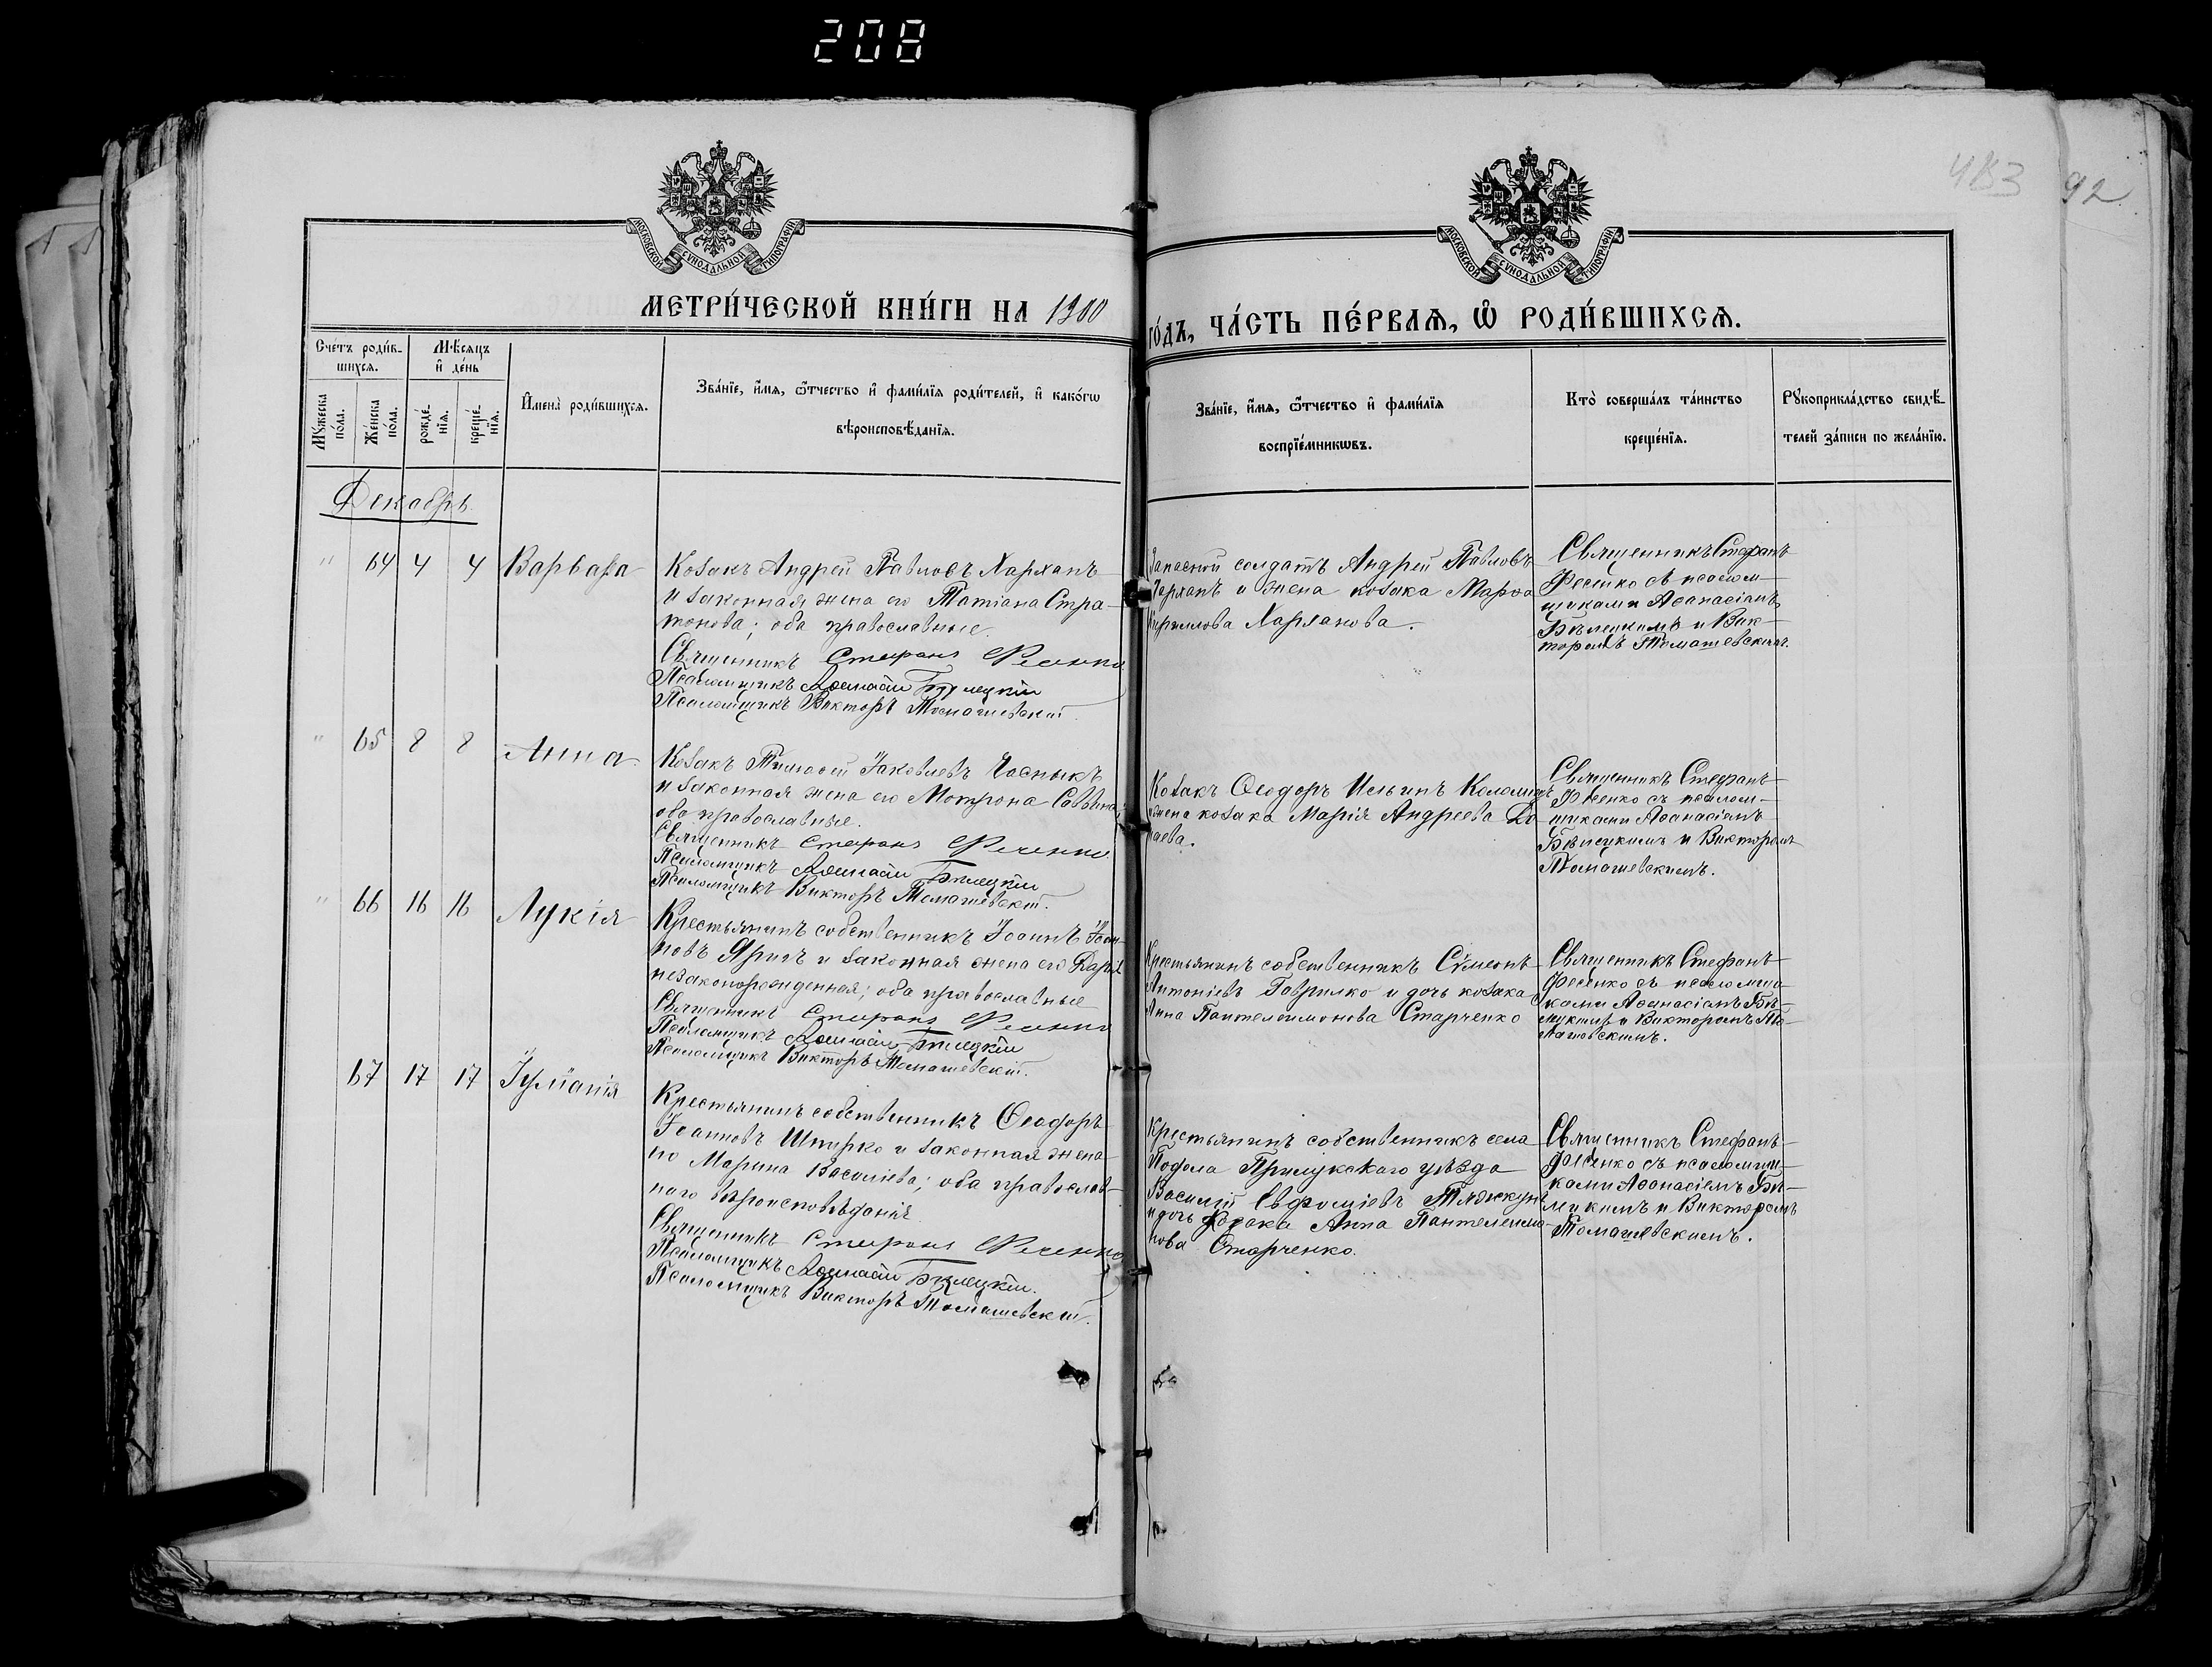 208
483
92
МОСКОВСКОЙ СУНОДАЛЬНОЙ ТИПОГРАФІИ
МОСКОВСКОЙ СУНОДАЛЬНОЙ ТИПОГРАФІИ
МЕТРИ́ЧЕСКОЙ КНИ́ГИ НА 1900
ГО́ДЪ, ЧА́СТЬ ПЕ́РВАѦ, Ѡ҆ РОДИ́ВШИХСѦ.
Сче́тъ роди́в-
шихсѧ.
Мѣ́сѧцъ
и҆ де́нь
Мꙋ́жеска
по́ла.
Же́нска
по́ла.
рожде́-
нїѧ.
креще́-
нїѧ.
И҆мена̀ роди́вшихсѧ.
Зва́нїе, и҆́мѧ, ѻ҆́тчество и҆ фами́лїѧ роди́телей, и҆ како́гѡ
вѣроисповѣ́данїѧ.
Зва́нїе, и҆́мѧ, ѻ҆́тчество и҆ фами́лїѧ
воспрїе́мникѡвъ.
Кто̀ соверша́лъ та́инство
креще́нїѧ.
Рꙋкоприкла́дство свидѣ́-
телей за́писи по жела́нїю.
Декабрь
" 64 4 4 Варвара
Козакъ Андрей Павловъ Харханъ
и законная жена его Татіана Стра-
тонова; оба православные.
Священникъ Стефанъ Фесенко
Псаломщикъ Аѳанасій Бѣлецкій
Псаломщикъ Викторъ Томашевскій.
Запасной солдатъ Андрей Павловъ
Харханъ и жена козака Марѳа
Кириллова Харханова.
Священникъ Стефанъ
Фесенко съ псалом-
щиками Аѳанасіемъ
Бѣлецкимъ и Вик-
торомъ Томашевскимъ.
" 65 8 8 Анна
Козакъ Тимоѳей Іаковлевъ Часныкъ
и законная жена его Мотрона Саввина;
оба православные.
Священникъ Стефанъ Фесенко
Псаломщикъ Аѳанасій Бѣлецкій
Псаломщикъ Викторъ Томашевскій.
Козакъ Ѳеодоръ Ильинъ Коломіецъ
и жена козака Марія Андреева
Священникъ Стефанъ
Фесенко съ псалом-
щиками Аѳанасіемъ
Бѣлецкимъ и Викторомъ
Томашевскимъ.
" 66 16 16 Лукія
Крестьянинъ собственникъ Іоаннъ Іоан-
новъ Яришъ и законная жена его Дарія
незаконорожденная; оба православные
Священникъ Стефанъ Фесенко
Псаломщикъ Аѳанасій Бѣлецкій
Псаломщикъ Викторъ Томашевскій.
Крестьянинъ собственникъ Сѵмеонъ
Антоніевъ Гаврилко и дочь козака
Анна Пантелеимонова Старченко
Священникъ Стефанъ
Фесенко съ псаломщи-
ками Аѳанасіемъ Бѣ-
лецкимъ и Викторомъ То-
машевскимъ.
67 17 17 Іуліанія
Крестьянинъ собственникъ Ѳеодоръ
Іоанновъ Шпирко и законная жена
его Марина Василіева; оба православ-
наго вѣроисповѣданія
Священникъ Стефанъ Фесенко
Псаломщикъ Аѳанасій Бѣлецкій.
Псаломщикъ Викторъ Томашевскій.
Крестьянинъ собственникъ села
Подола Прилукскаго уѣзда
Василій Евфиміевъ Тяжкунъ
и дочь козака Анна Пантелеимо-
нова Старченко.
Священникъ Стефанъ
Фесенко съ псаломщи-
ками Аѳанасіемъ Бѣ-
лецкимъ и Викторомъ
Томашевскимъ.